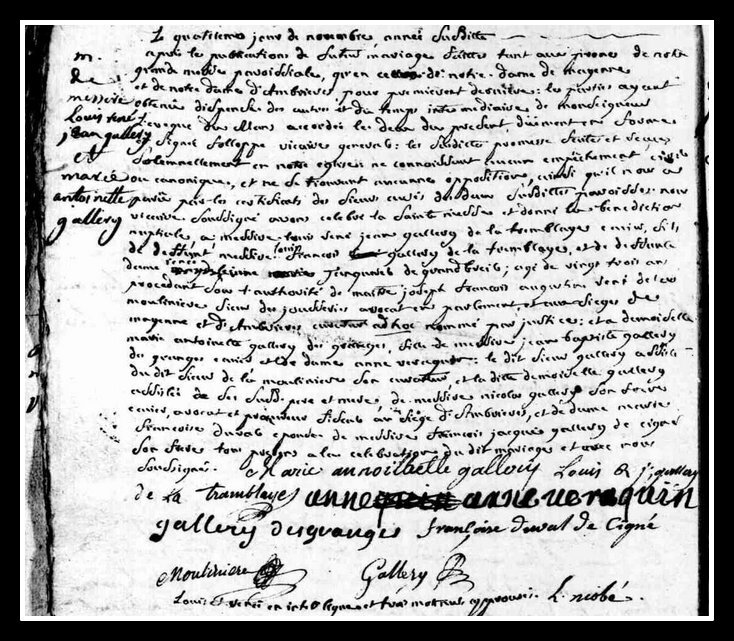 Le quatrieme jour de novembre année susditte
m. de messire Louis rené jean gallery et marie antoinette gallery
après la publications de futur mariage faittes tant aux prones de notre
grande messe paroissiale, qu'en celles de notre-dame de mayenne
et de notre dame d'Ambrieres, pour premiere et derniere: les parties ayant
obtenüe dispenche des autres et du temps intermediaire de monseigneur
l'eveque du Mans accordée le deux du present, düement en forme
signé follope vicaire general: les susdittes promesse
solemnellement en notre eglise: ne connoissant aucun empêchement, civile
ou canonique, et ne se trouvant aucunne opposition, ainsi qu'il nous a
parüe par les certificats des sieurs curés des deux susdittes paroisses: nous
vicaire soussigné avons celebré la sainte messe et donné la benediction
nuptiale a messire louis rené jean gallery de la tremblaye ecuier, fils
de deffunt messire louis François gallery de la tremblaye, et de deffunte
dame renée Jarquande de grandbreil; agé de vingt trois ans
procedant sous l'authorité de maitre joseph François augustin rené de la
moulinniere sieur des jousseries avocat en parlement, et aux sieges de
mayenne et d'Ambrieres curateur ad hoc nommé par justice: et a demoiselle
marie antoinette gallery des granges, fille de messire jean baptiste gallery
des granges ecuier et de dame anne veraquin: le dit sieur gallery assisté
du dit sieur de la moulinniere son curateur, et la ditte demoiselle gallery
assistée de ses susd. pere et mere de messire nicolas gallery son frere
ecuier, avocat et procureur fiscal au siège d'Ambrieres, et de dame marie
Françoise duval epouse de messire François jacques gallery de cigné
son frere tous presens a la celebration du dit mariage et avec nous
soussignés. Marie annoitbelle gallery Louis R j. gallery
de La tramblaye anne veraquin
gallery desgranges françoise duval de Cigné
Moulinniere Gallery
Louis et renée en interligne et trois mots rayés approuvés. L. niobé.